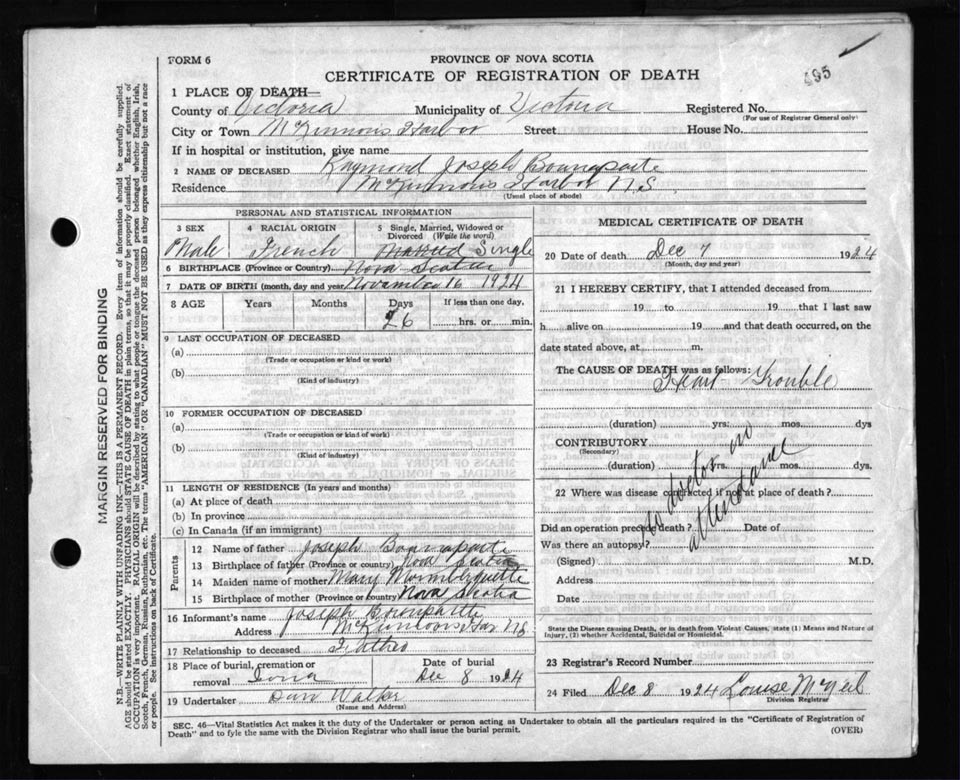 FORM 6
PROVINCE OF NOVA SCOTIA
CERTIFICATE OF REGISTRATION OF DEATH
495
1 PLACE OF DEATH—
County of Victoria Municipality of Victoria Registered No.
(For use of Registrar General only)
City or Town McKinnons Harbor Street House No.
If in hospital or institution, give name
2 NAME OF DECEASED Raymond Joseph Bounaparte
Residence McKinnons Harbor N.S.
(Usual place of abode)
MARGIN RESERVED FOR BINDING
N.B.—WRITE PLAINLY WITH UNFADING INK—THIS IS A PERMANENT RECORD. Every item of information should be carefully supplied.
AGE should be stated EXACTLY. PHYSICIANS should STATE CAUSE OF DEATH in plain terms, so that it may be properly classified. Exact statement of
OCCUPATION is very important. RACIAL ORIGIN will be described by stating to what people or tongue the deceased person belonged whether English, Irish,
Scotch, French, German, Russian, Ruthenian, etc. The terms "AMERICAN" OR "CANADIAN" MUST NOT BE USED as they express citizenship but not a race
or people. See instructions on back of Certificate.
PERSONAL AND STATISTICAL INFORMATION
3 SEX
Male
4 RACIAL ORIGIN
French
5 Single, Married, Widowed or
Divorced (Write the word)
Married Single
6 BIRTHPLACE (Province or Country) Nova Scotia
7 DATE OF BIRTH (month, day and year) November 16 1924
8 AGE Years Months Days If less than one day,
26 hrs. or min.
9 LAST OCCUPATION OF DECEASED
(a)
(Trade or occupation or kind or work)
(b)
(Kind of industry)
10 FORMER OCCUPATION OF DECEASED
(a)
(Trade or occupation or kind of work)
(b)
(Kind of industry)
11 LENGTH OF RESIDENCE (In years and months)
(a) At place of death
(b) In province
(c) In Canada (if an immigrant)
Parents
12 Name of father Joseph Bounaparte
13 Birthplace of father (Province or country) Nova Scotia
14 Maiden name of mother Mary
15 Birthplace of mother (Province or Country) Nova Scotia
16 Informant's name Joseph
Address McKinnons Har NS
17 Relationship to deceased Father
18 Place of burial, cremation or
removal Iona
Date of burial
Dec 8 1924
19 Undertaker Dan Walker
(Name and Address)
MEDICAL CERTIFICATE OF DEATH
20 Date of death Dec 7 1924
(Month, day and year)
21 I HEREBY CERTIFY, that I attended deceased from
19 to 19 that I last saw
h alive on 19 and that death occurred, on the
date stated above, at m.
The CAUSE OF DEATH was as follows:
Heart Trouble
(duration) yrs. mos. dys
CONTRIBUTORY
(Secondary)
(duration) yrs. mos. dys.
No doctor in
attendance
22 Where was disease contracted if not at place of death?
Did an operation precede death? Date of
Was there an autopsy?
(Signed) M.D.
Address
Date
State the Disease causing Death, or in death from Violent Causes, state (1) Means and Nature of
Injury, (2) whether Accidental, Suicidal or Homicidal.
23 Registrar's Record Number
24 Filed Dec 8 1924 Louise McNeil
Division Registrar
SEC. 46—Vital Statistics Act makes it the duty of the Undertaker or person acting as Undertaker to obtain all the particulars required in the "Certificate of Registration of
Death" and to fyle the same with the Division Registrar who shall issue the burial permit.
(OVER)